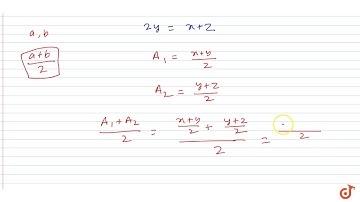 a, b
(a+b)/2
2y = x+z
A₁ = (x+y)/2
A₂ = (y+z)/2
(A₁ + A₂)/2 = ((x+y)/2 + (y+z)/2)/2 = /2